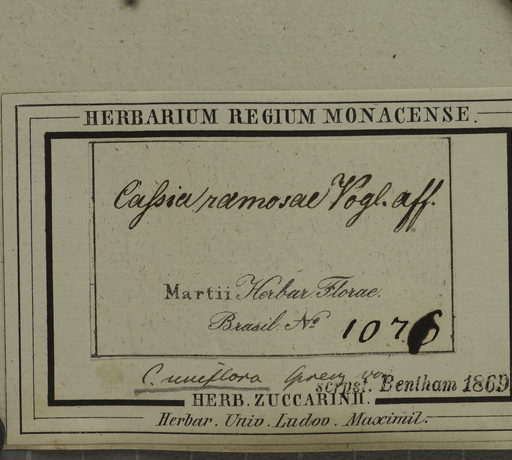 HERBARIUM REGIUM MONACENSE.
Cassia ramosae Vogl. aff.
Martii Herbar. Florae
Brasil. No 1076
C. uniflora Spreng var
scrpst. Bentham 1869
HERB. ZUCCARINII.
Herbar. Univ. Ludov. Maximil.